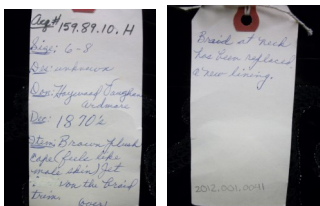 Acq# 159.89.10.H
Size: 6-8
Des: unknown
Don: Haywood Vaughan
Ardmore
Dec: 1870's
Item: Brown plush
cape (feels like
mole skin) Jet
on the braid
trim
(over)
Braid at neck
has been replaced,
a new lining.
2012.001.0041